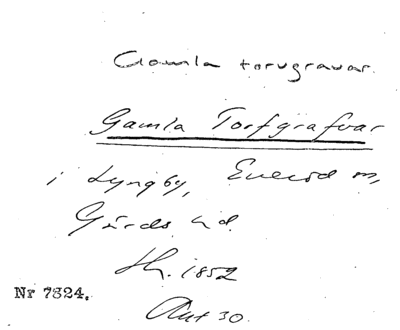 Gamla torvgravar.
Gamla Torfgrafvar
i Lyngby, Everöd m,
Gärds hd.
Sk. 1852
Nr 7324.
Aut 30.